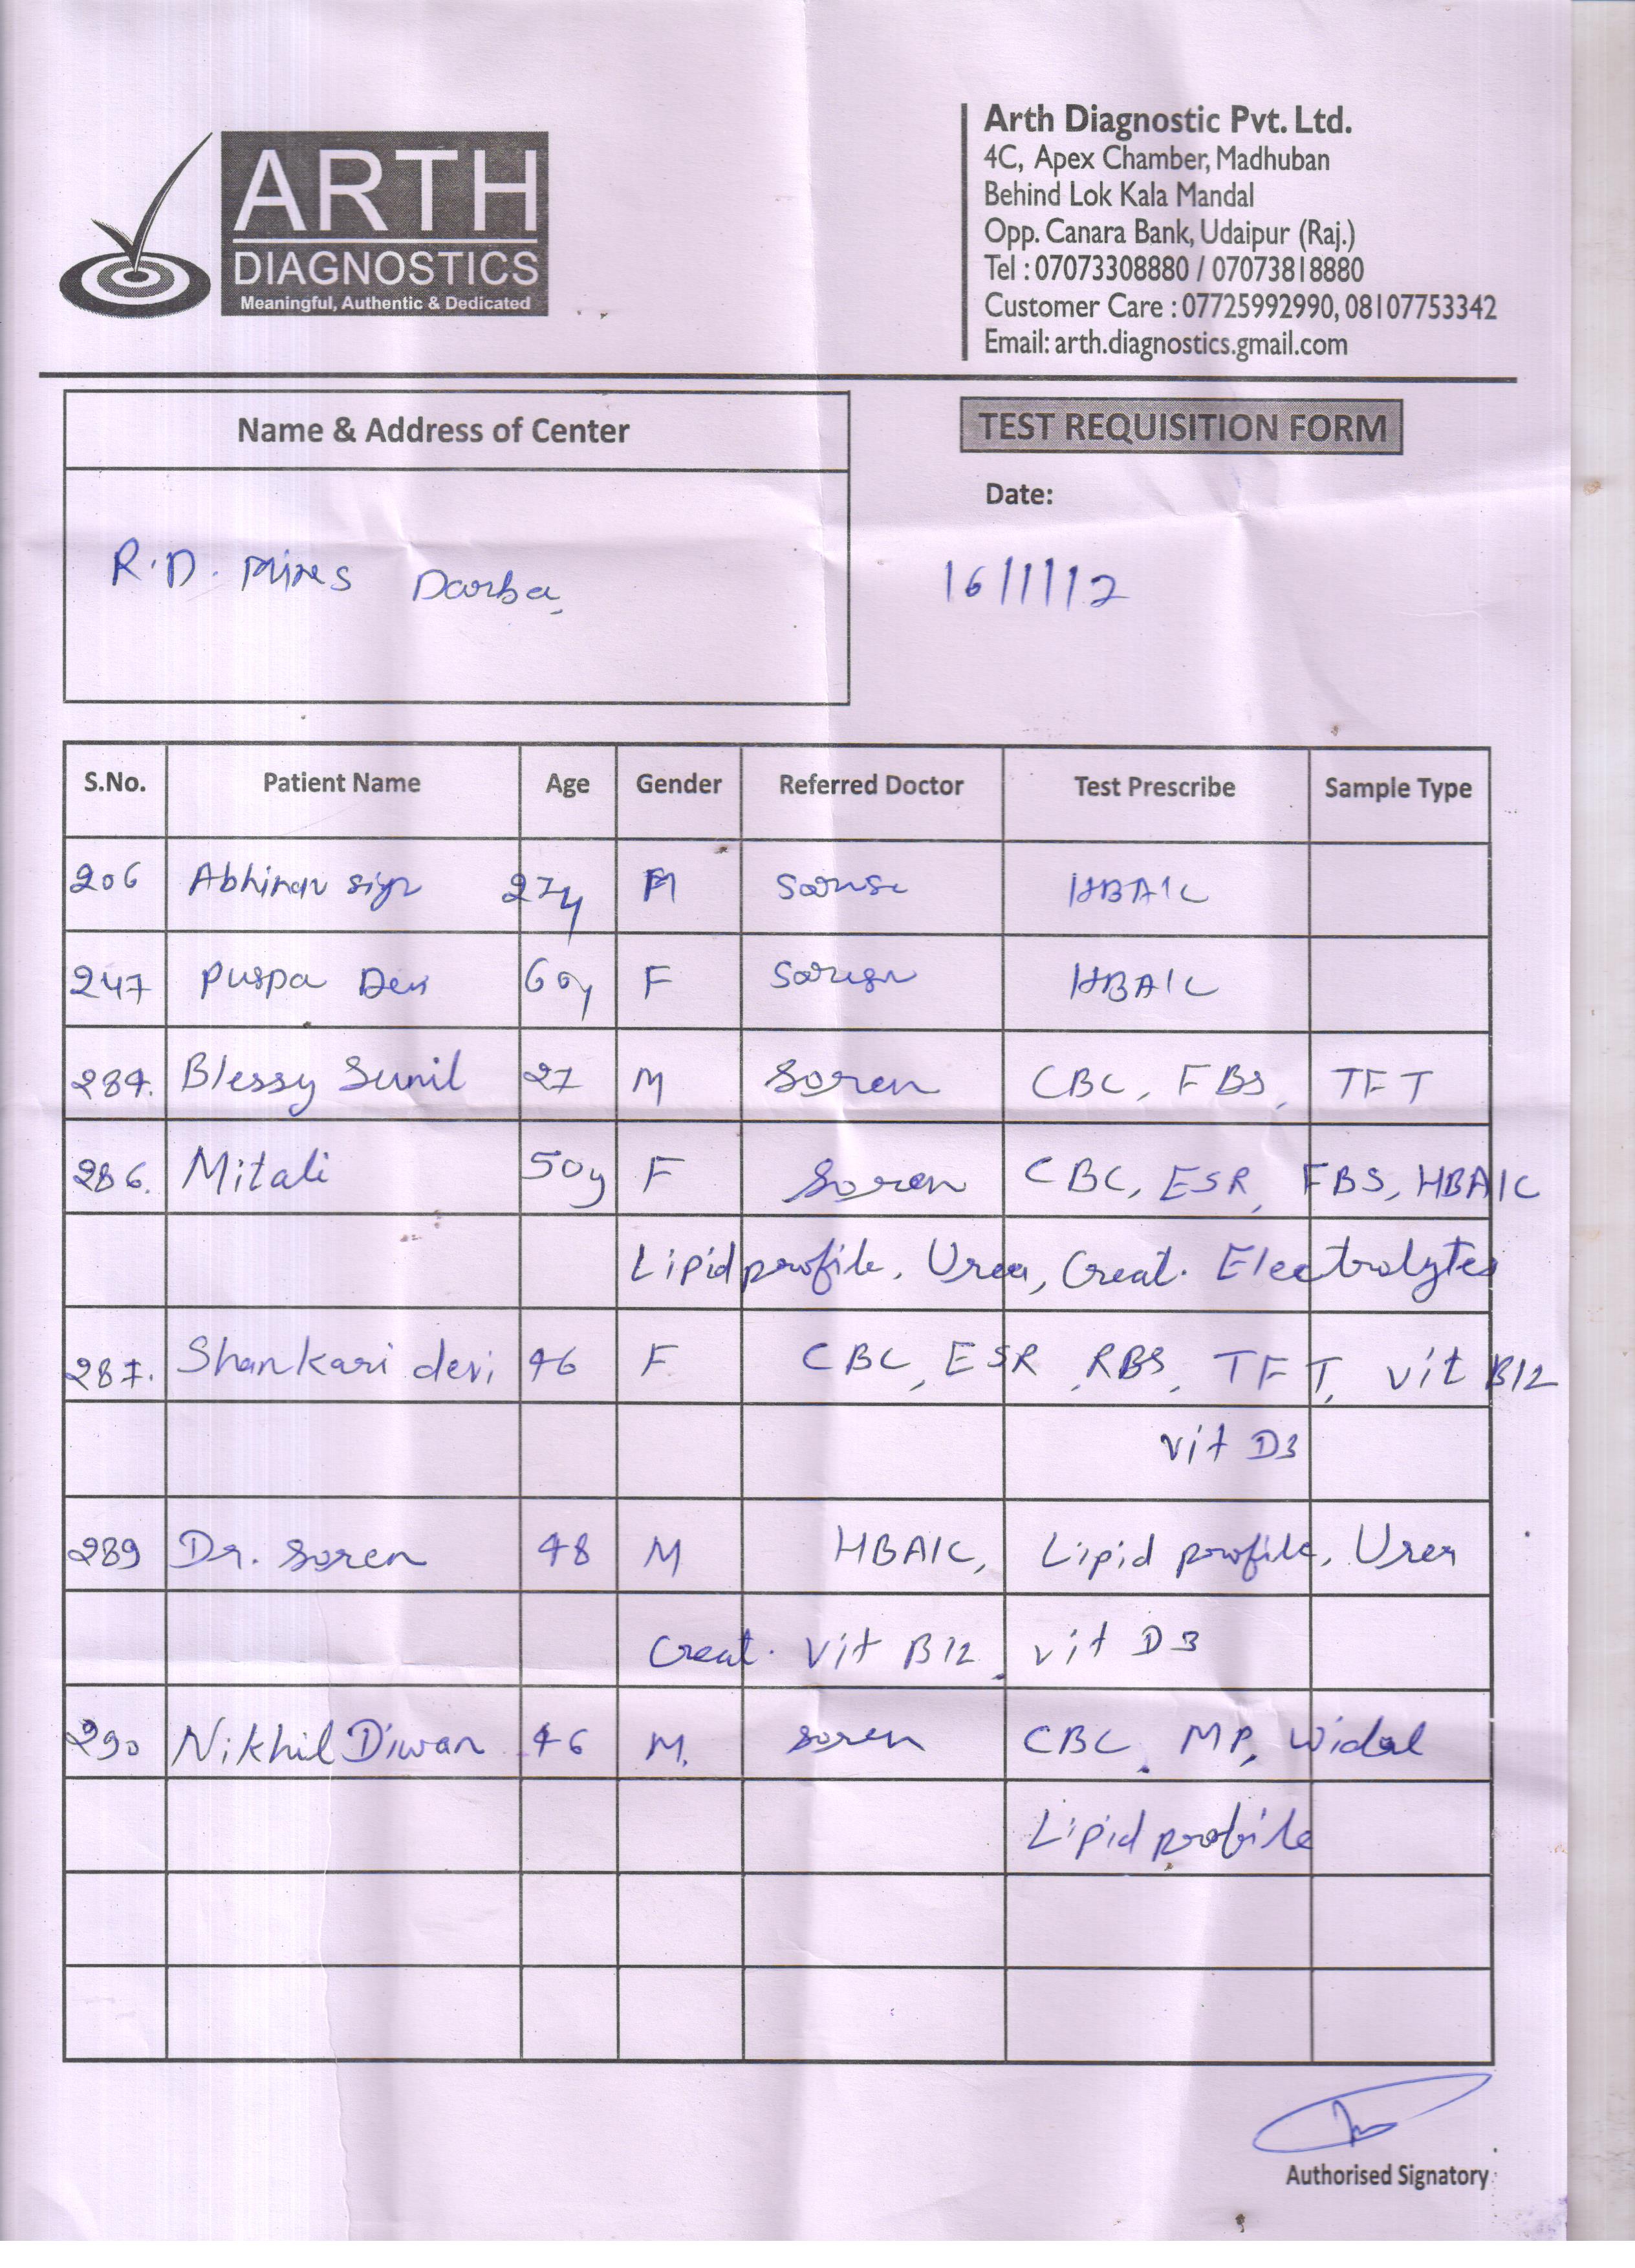 ARTH
DIAGNOSTICS
Meaningful, Authentic & Dedicated
Arth Diagnostic Pvt. Ltd.
4C, Apex Chamber, Madhuban
Behind Lok Kala Mandal
Opp. Canara Bank, Udaipur (Raj.)
Tel : 07073308880 / 07073818880
Customer Care : 07725992990, 08107753342
Email: arth.diagnostics.gmail.com
Name & Address of Center
TEST REQUISITION FORM
Date:
R.D. Mines
16/1/12
S.No. Patient Name Age Gender Referred Doctor Test Prescribe Sample Type
206 Abhinav 27y M HBA1C
247 Puspa Devi 60y F HBA1C
284. Blessy Sunil 27 M Soren CBC, FBS, TFT
286. Mitali 50y F Soren CBC, ESR, FBS, HBA1C
Lipid profile, Urea, Creat. Electrolytes
287. Shankari devi 46 F CBC, ESR, RBS, TFT, vit B12
vit D3
289 Dr. Soren 48 M HBA1C, Lipid profile, Urea
Creat. Vit B12, vit D3
290 Nikhil Diwan 46 M. Soren CBC, MP, Widal
Lipid profile
Authorised Signatory